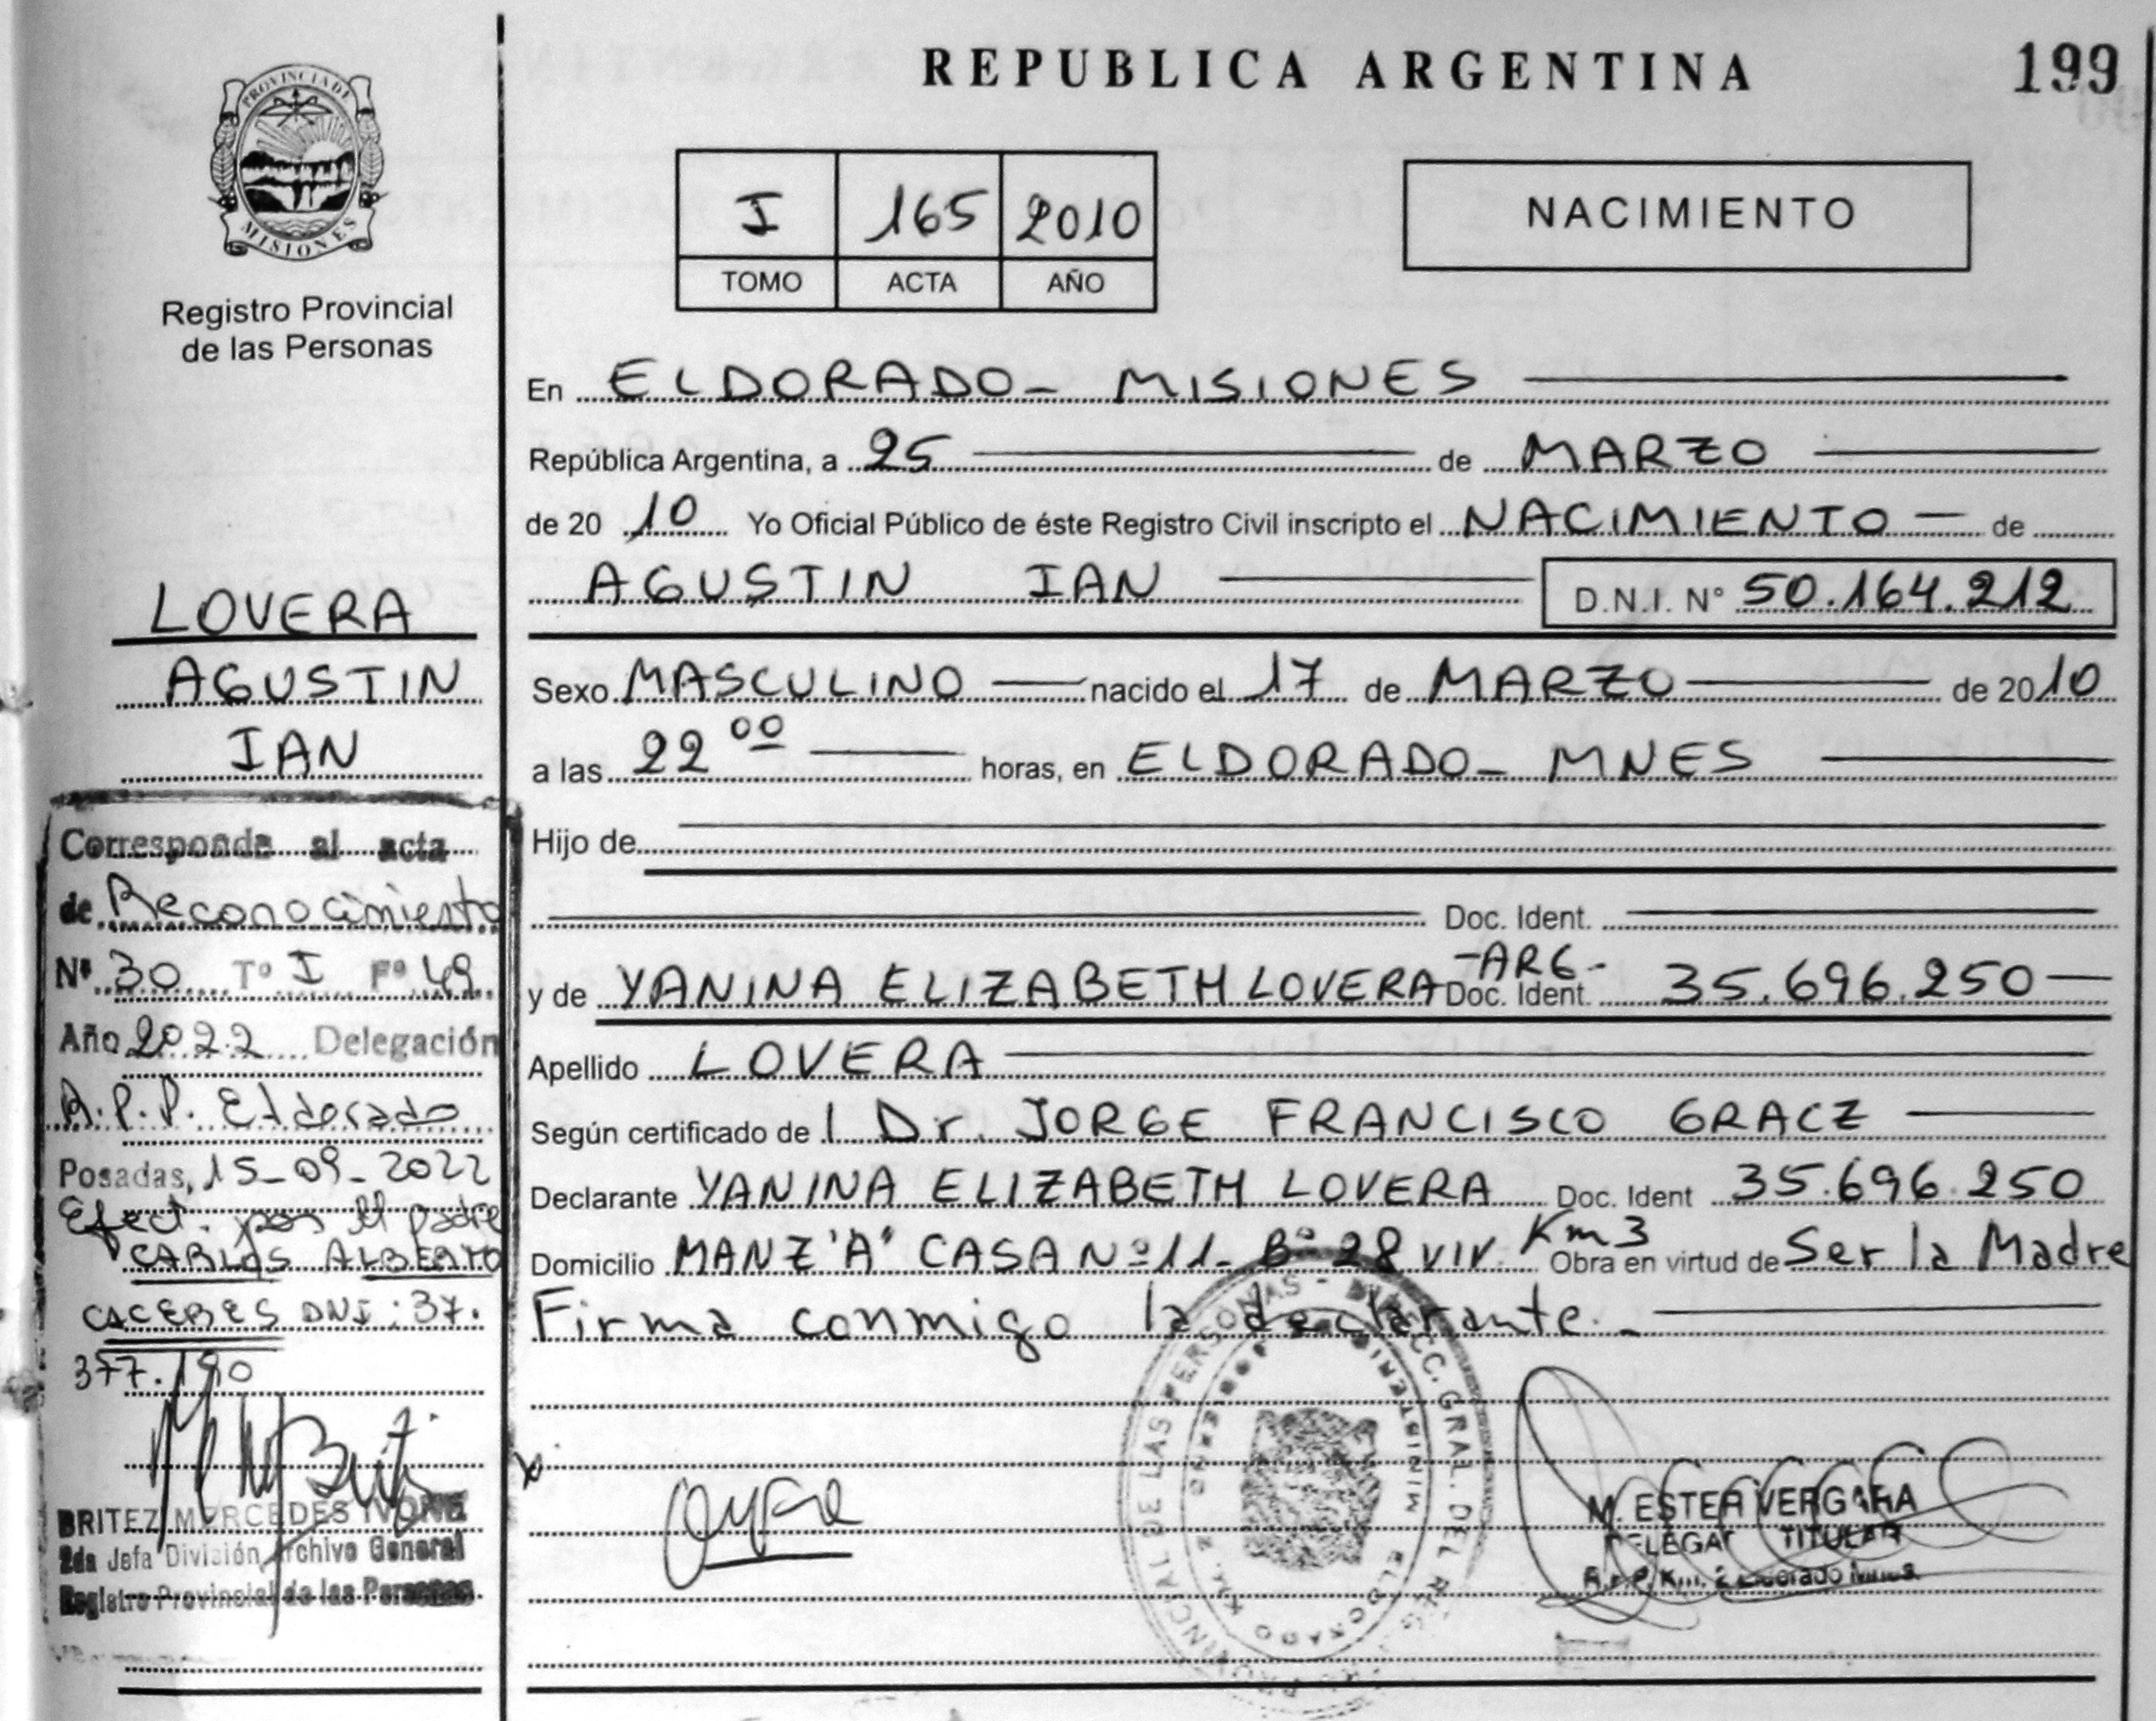 REPUBLICA ARGENTINA
199
PROVINCIA DE
MISIONES
Registro Provincial
de las Personas
I 165 2010
TOMO ACTA AÑO
NACIMIENTO
En ELDORADO - MISIONES
República Argentina, a 25 de MARZO
de 2010 Yo Oficial Público de éste Registro Civil inscripto el NACIMIENTO de
AGUSTIN IAN D.N.I. N° 50.164.212
Sexo MASCULINO nacido el 17 de MARZO de 2010
a las 22 00 horas, en ELDORADO - MNES
Hijo de
Doc. Ident.
-ARG-
y de YANINA ELIZABETH LOVERA Doc. Ident. 35.696.250
Apellido LOVERA
Según certificado de l Dr. JORGE FRANCISCO GRACZ
Declarante YANINA ELIZABETH LOVERA Doc. Ident 35.696.250
Domicilio MANZ "A" CASA Nº 11 - Bº 28 VIV. Km 3 Obra en virtud de Ser la Madre
Firma conmigo la declarante.-
LOVERA
AGUSTIN
IAN
Corresponde al acta
de Reconocimiento
Nº 30 Tº I Fº 49
Año 2022 Delegación
R.P.P. Eldorado
Posadas, 15-09-2022
Efect. por el padre
CARLOS ALBERTO
CACERES DNI: 37.
377.190
BRITEZ MERCEDES IVONE
2da Jefa División Archivo General
Registro Provincial de las Personas
M. ESTER VERGARA
TITULAR